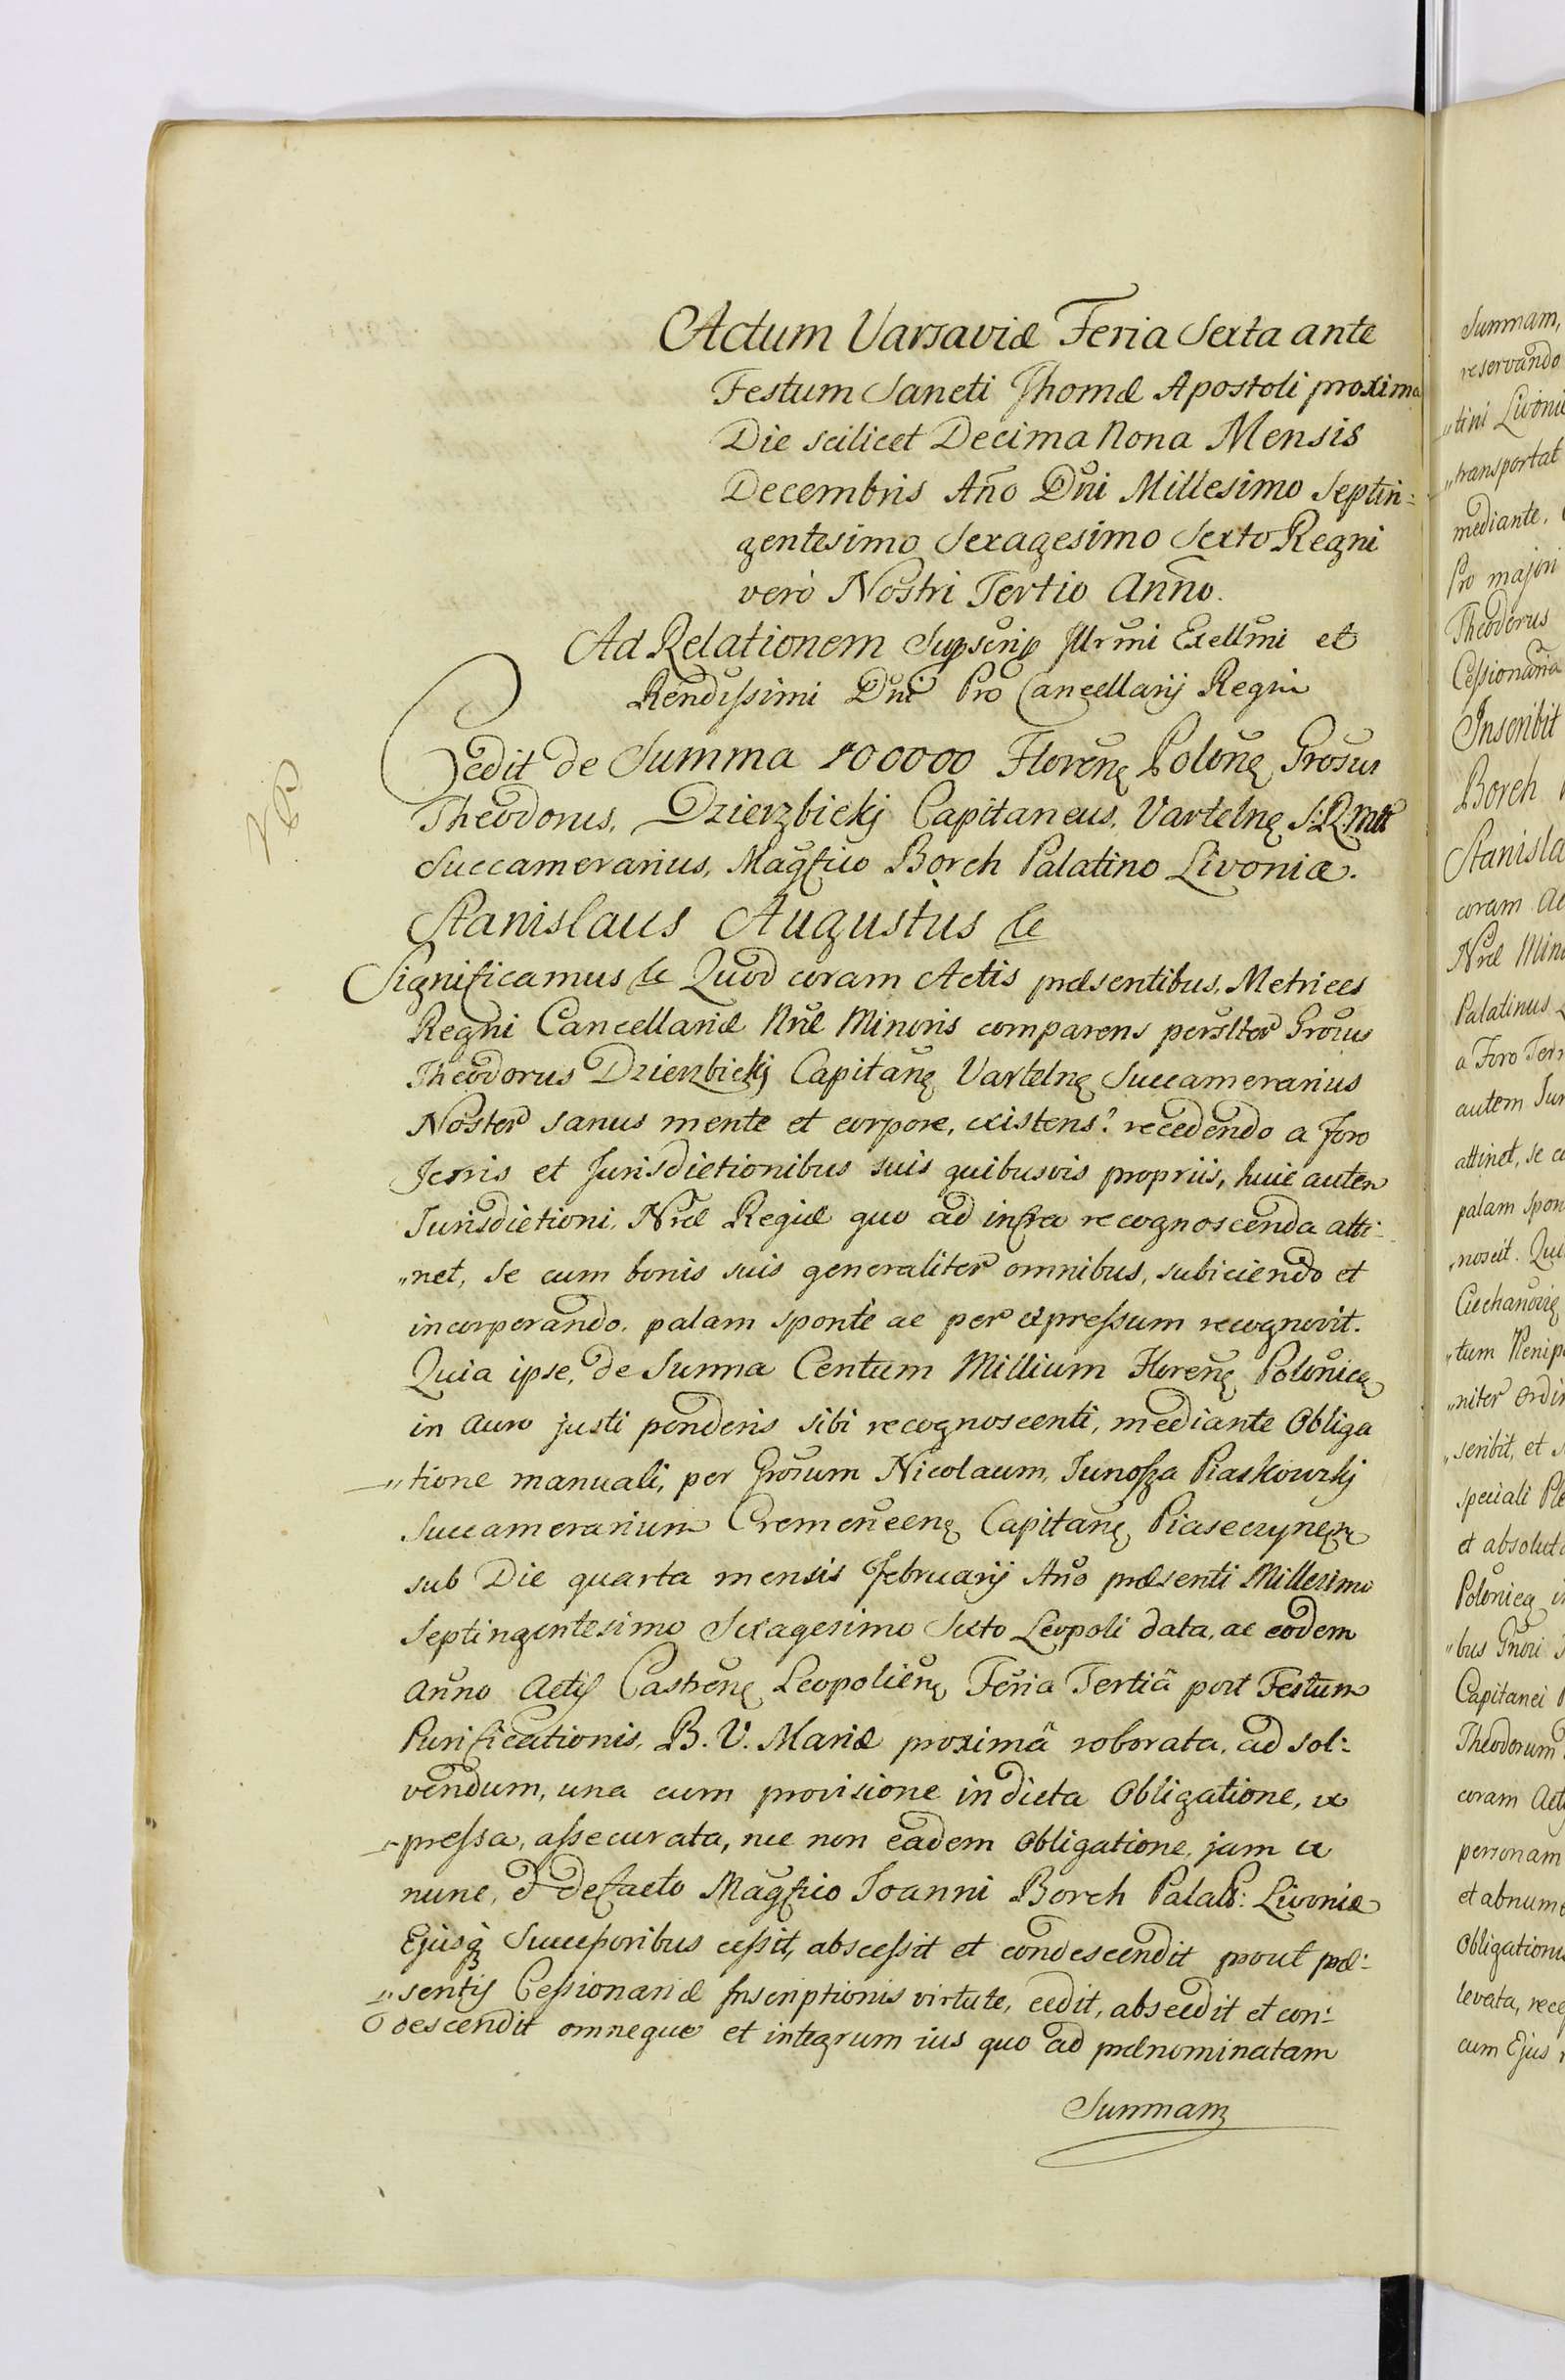 Actum Varsaviæ Feria Sexta ante
Festum Sancti Thomæ Apostoli proxima
Die scilicet Decima Nona Mensis
Decembris Año Dñi Millesimo Septin=
gentesimo Sexagesimo Sexto Regni
verò Nostri Tertio Anño.
Ad Relationem Supscrip Illrmi Exellmi et
Rendissimi Dni Pro Cancellarij Regni
NB
Cedit de Summa 100000 Floreñ Poloñ Grosus
Theodorus, Dzierzbickj Capitaneus, Varteln S:R:Mtt
Succamerarius, Magfico Borch Palatino Livoniæ.
Stanislaus Augustus &c
Significamus &c Quod coram Actis præsentibus, Metrices
Regni Cancellariæ Nræ Minoris comparens perslter Grosus
Theodorus Dzierzbickj Capitañ Varteln Succamerarius
Noster sanus mente et corpore, existens: recedendo a Foro
Terris et Jurisdictionibus suis quibusvis propriis, huic autem
Jurisdictioni, Nræ Regiæ quo ad infra recognoscenda atti=
„net, se cum bonis suis generaliter omnibus, subiciendo et
incorporando, palam spontè ac per expressum recognovit.
Quia ipse, de Summa Centum Millium Floreñ Polonica
in auro justi ponderis sibi recognoscenti, mediante Obliga
„tione manuali, per Grosum Nicolaum, Junosza Piaskowskj
Succamerarium Cremeneen Capitañ Piaseczynen
sub Die quarta mensis Februarij Año præsenti Millesimo
Septingentesimo Sexagesimo Sexto Leopoli data, ac eodem
Anño Actis Castreñ Leopolien Feria Tertiâ post Festum
Purificationis, B. V. Mariæ proximâ roborata, ad sol=
vendum, una cum provisione in dicta Obligatione, ex
„pressa, assecurata, nec non eadem Obligatione, jam ex
nunc, & defacto Magfico Joanni Borch Palatt: Livoniæ
Ejusq Successoribus cessit, abscessit et condescendit prout præ=
„sentis Cessionariæ Inscriptionis virtute, cedit, abscedit et con=
descendit omneque et integrum ius quo ad prænominatam
Summam
Summam,
reservando
„tini Livoniæ
„transportat
mediante,
Pro majori
Theodorus
Cessionaria
Inscribit
Borch
Stanisla
coram Ac
Nræ Mino
Palatinus
a Foro Terr
autem Jur
attinet, se c
palam spon
„noscit. Qui
Ciechanovie
„tum Plenip
„niter ordin
„scribit, et
speciali Ple
et absoluta
Polonica in
„bus Gnosi
Capitanei
Theodorum
coram Acti
personam
et abnume
Obligationis
levata, recep
cum Ejus